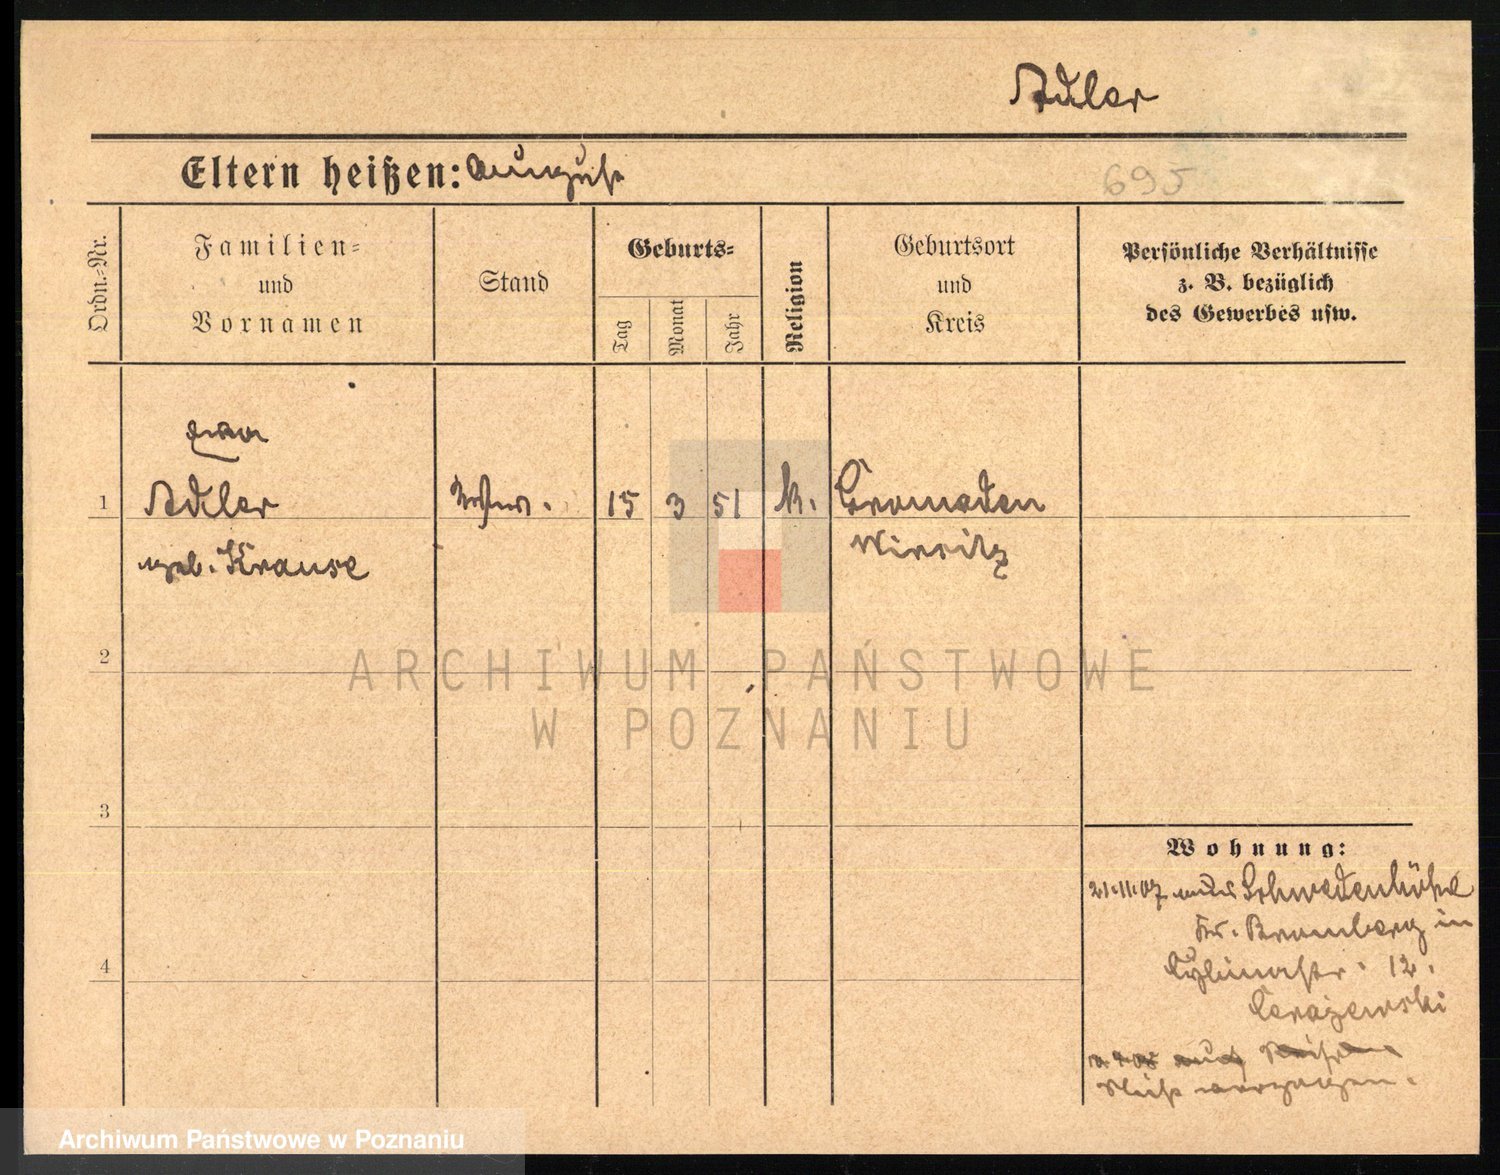 Adler
Eltern heißen: August
695
Ordn.-Nr.
Familien-
und
Vornamen
Stand
Geburts-
Tag
Monat
Jahr
Religion
Geburtsort
und
Kreis
Persönliche Verhältnisse
z. B. bezüglich
des Gewerbes usw.
Eva
1 Adler Wwe. 15 3 51 k. Gromaden
Wirsitz
geb. Krause
2
ARCHIWUM PAŃSTWOWE
W POZNANIU
3
Wohnung:
21.11.07 Schwedenhöhe
Kr. Bromberg in
12.
4
verzogen.
Archiwum Państwowe w Poznaniu